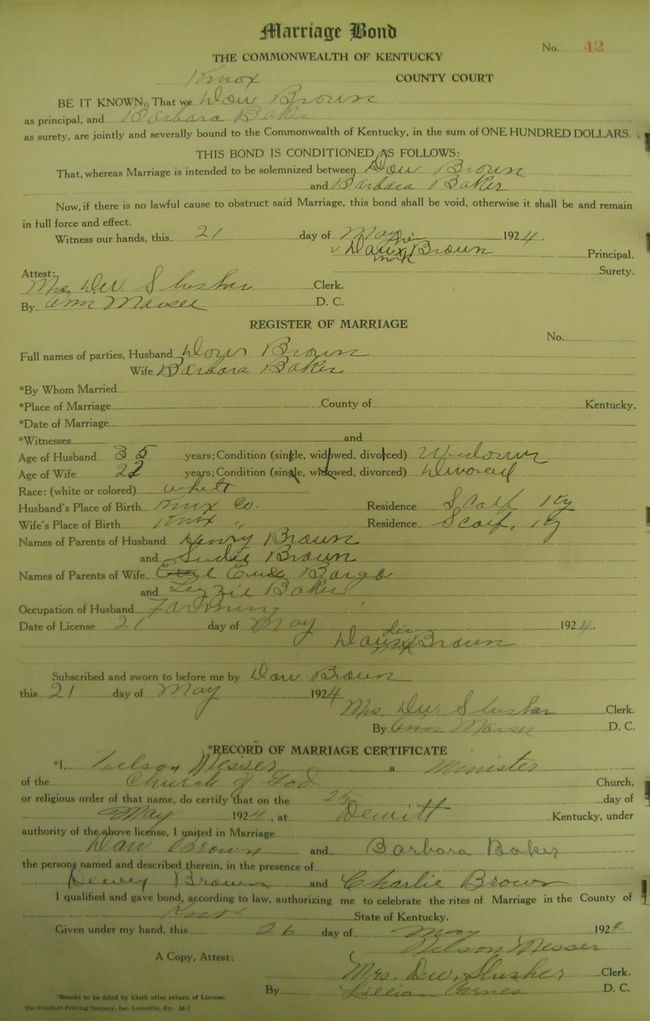 Marriage Bond
No. 42
THE COMMONWEALTH OF KENTUCKY
Knox COUNTY COURT
BE IT KNOWN, That we Daw Brown
as principal, and Barbara Baker
as surety, are jointly and severally bound to the Commonwealth of Kentucky, in the sum of ONE HUNDRED DOLLARS.
THIS BOND IS CONDITIONED AS FOLLOWS:
That, whereas Marriage is intended to be solemnized between Daw Brown
and Barbara Baker
Now, if there is no lawful cause to obstruct said Marriage, this bond shall be void, otherwise it shall be and remain
in full force and effect.
Witness our hands, this 21 day of May 1924.
Daw his x mark Brown Principal.
Surety.
Attest:
Mrs. DW Slusher Clerk.
By Ann Marsee D. C.
REGISTER OF MARRIAGE
No.
Full names of parties, Husband Daw Brown
Wife Barbara Baker
*By Whom Married
*Place of Marriage County of Kentucky.
*Date of Marriage
*Witnesses and
Age of Husband 35 years; Condition (single, widowed, divorced) Widower
Age of Wife 22 years; Condition (single, widowed, divorced) Divorced
Race: (white or colored) white
Husband's Place of Birth Knox Co. Residence Scalf, Ky
Wife's Place of Birth Knox " Residence Scalf, Ky
Names of Parents of Husband Henry Brown
and Sudie Brown
Names of Parents of Wife Bargo
and Lizzie Baker
Occupation of Husband Farming
Date of License 21 day of May 1924.
Daw his x Brown
Subscribed and sworn to before me by Daw Brown
this 21 day of May 1924
Mrs. DW Slusher Clerk.
By Ann Marsee D. C.
*RECORD OF MARRIAGE CERTIFICATE
*I, Wilson Messer a Minister
of the Church of God Church,
or religious order of that name, do certify that on the 25 day of
May 1924, at Dewitt Kentucky, under
authority of the above license, I united in Marriage
Daw Brown and Barbara Baker
the persons named and described therein, in the presence of
Dewey Brown and Charlie Brown
I qualified and gave bond, according to law, authorizing me to celebrate the rites of Marriage in the County of
Knox State of Kentucky.
Given under my hand, this 26 day of May 1924
Wilson Messer
A Copy, Attest:
Mrs. DW. Slusher Clerk.
By Lillian Carnes D. C.
*Blanks to be filled by Clerk after return of License.
The Standard Printing Company, Inc. Louisville, Ky. M-7